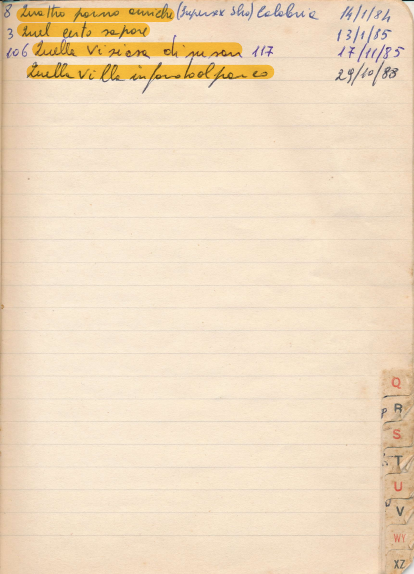 8 Quattro porno amiche (Supersex Sho) Calabria 14/1/84
3 Quel certo sapore 13/1/85
106 Quella viziosa di Susan 117 17/11/85
Quella villa in fondo al parco 29/10/88
Q
R
S
T
U
V
WY
XZ